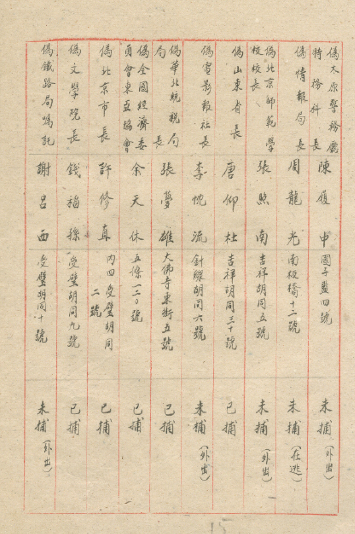 偽太原警務處
特務科長 陳履中 國子監四號 未捕(外出)
偽情報局長 周龍光 南板橋十二號 未捕(在逃)
偽北京師範學
校校長 張煦南 吉祥胡同五號 未捕(外出)
偽山東省長 唐仰杜 吉祥胡同三十號 已捕
偽實報社長 李 流 針線胡同六號 未捕(外出)
偽華北統稅局
局長 張夢雄 大佛寺東街五號 已捕
偽全國經濟委
員會東亞協會 余天休 五條一二〇號 已捕
偽北京市長 許修真 內四受璧胡同
二號 已捕
偽文學院長 錢稻孫 受璧胡同九號 已捕
偽鐵路局 謝呂西 受璧胡同十號 未捕(外出)
15